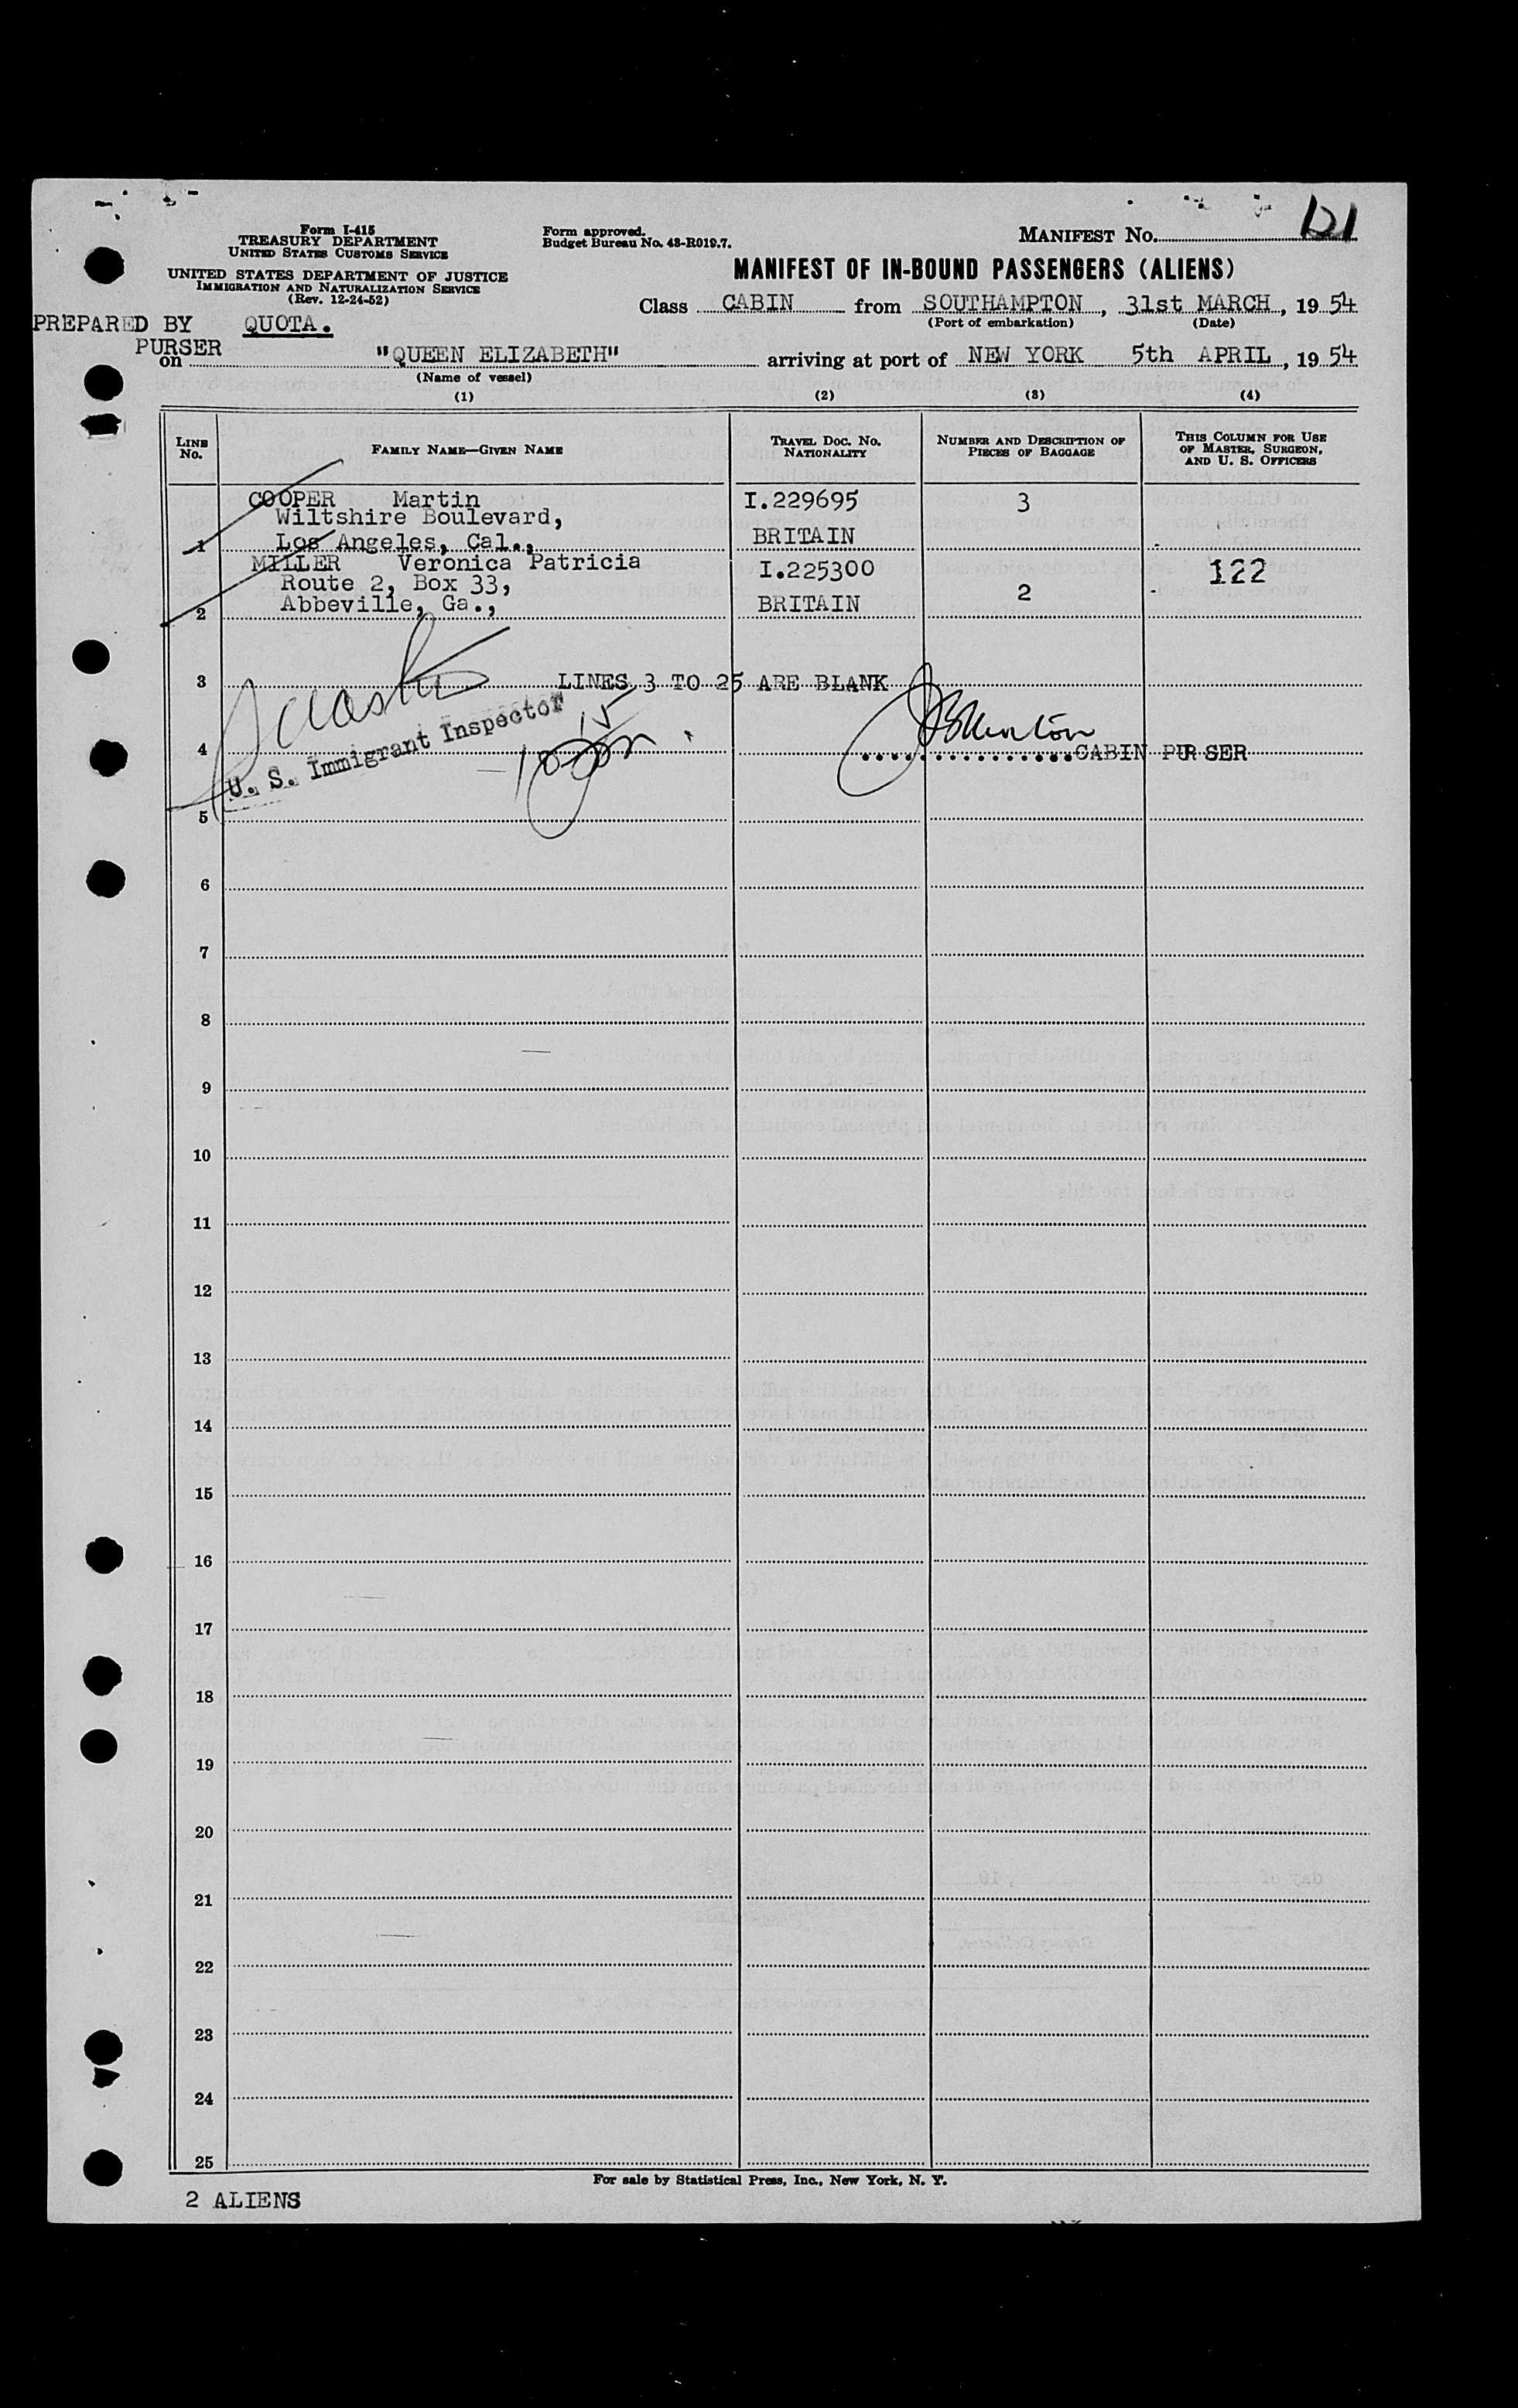 Form I-415
TREASURY DEPARTMENT
UNITED STATES CUSTOMS SERVICE
UNITED STATES DEPARTMENT OF JUSTICE
IMMIGRATION AND NATURALIZATION SERVICE
(Rev. 12-24-52)
Form approved.
Budget Bureau No. 43-R019.7.
MANIFEST No.
MANIFEST OF IN-BOUND PASSENGERS (ALIENS)
Class CABIN from SOUTHAMPTON, 31st MARCH, 1954
(Port of embarkation) (Date)
PREPARED BY QUOTA.
PURSER
on "QUEEN ELIZABETH" arriving at port of NEW YORK 5th APRIL, 1954
(Name of vessel)
(1) (2) (3) (4)
LINE No. FAMILY NAME—GIVEN NAME TRAVEL DOC. No. NATIONALITY NUMBER AND DESCRIPTION OF PIECES OF BAGGAGE THIS COLUMN FOR USE OF MASTER, SURGEON, AND U. S. OFFICERS
COOPER Martin I.229695 3
Wiltshire Boulevard,
1 Los Angeles, Cal., BRITAIN
MILLER Veronica Patricia I.225300 122
Route 2, Box 33, 2
2 Abbeville, Ga., BRITAIN
3 LINES 3 TO 25 ARE BLANK
U. S. Immigrant Inspector
4 CABIN PURSER
5
6
7
8
9
10
11
12
13
14
15
16
17
18
19
20
21
22
23
24
25
For sale by Statistical Press, Inc., New York, N. Y.
2 ALIENS